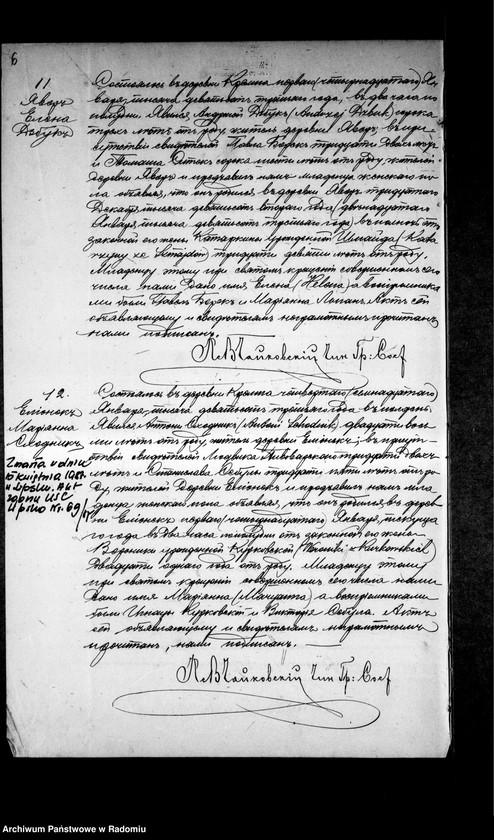 6
11
Яворъ
Елена
Дябукъ
Состоялось въ деревни Крампа перваго (четырнадцатаго) Ян-
варя, тысяча девятьсотъ третьяго года, въ два часа по
полудни. Явился Андрей Дябукъ / Andrzej / сорока
трехъ лѣтъ отъ роду, житель деревни Яворъ, въ при-
сутствіи свидѣтелей Павла тридцати двухъ лѣтъ
и Томаша сорока шести лѣтъ отъ роду, жителей
деревни Яворъ и предъявилъ намъ младенца женскаго по-
ла объявляя, что онъ родился въ деревни Яворъ тридцатаго
Декабря, тысяча девятьсотъ втораго года / двѣнадцатаго
Января, тысяча девятьсотъ третьяго года / отъ
законной его жены Катаржины урожденной / Kata-
тридцати девяти лѣтъ отъ роду.
Младенцу этому при святомъ крещеніи совершенномъ сего
числа нами дано имя Елена / Helena / а воспріемника-
ми были Павелъ и Маріанна Актъ сей
объявляющему и свидѣтелямъ неграмотнымъ прочитанъ,
нами подписанъ.
Чин Гр: Сост
12.
Маріанна
Zmarła w dniu
15 kwietnia 1987
w Lipsku. Akt
zgonu USC
Lipsko Nr. 69/87
Состоялось въ деревни Крампа четвертаго (семнадцатаго)
Января, тысяча девятьсотъ третьяго года въ полдень.
Явился Антони / Antoni / двадцати вось-
ми лѣтъ отъ роду, житель деревни въ присут-
ствіи свидѣтелей Людвика тридцати двухъ
лѣтъ и Станислава тридцати пяти лѣтъ отъ ро-
ду, жителей деревни и предъявилъ намъ мла-
денца женскаго пола объявляя, что онъ родился въ дерев-
ни перваго / четырнадцатаго Января, текущаго
года въ два часа пополудни отъ законной его жены
Вероники урожденной Курковской / Weronika z Kurkowskich /
двадцати одного года отъ роду. Младенцу этому
при святомъ крещеніи совершенномъ сего числа нами
дано имя Маріанна (Maryanna) а воспріемниками
были Игнацы Курковскій и Викторія Актъ
сей объявляющему и свидѣтелямъ неграмотнымъ
прочитанъ, нами подписанъ.
Чин Гр: Сост
Archiwum Państwowe w Radomiu